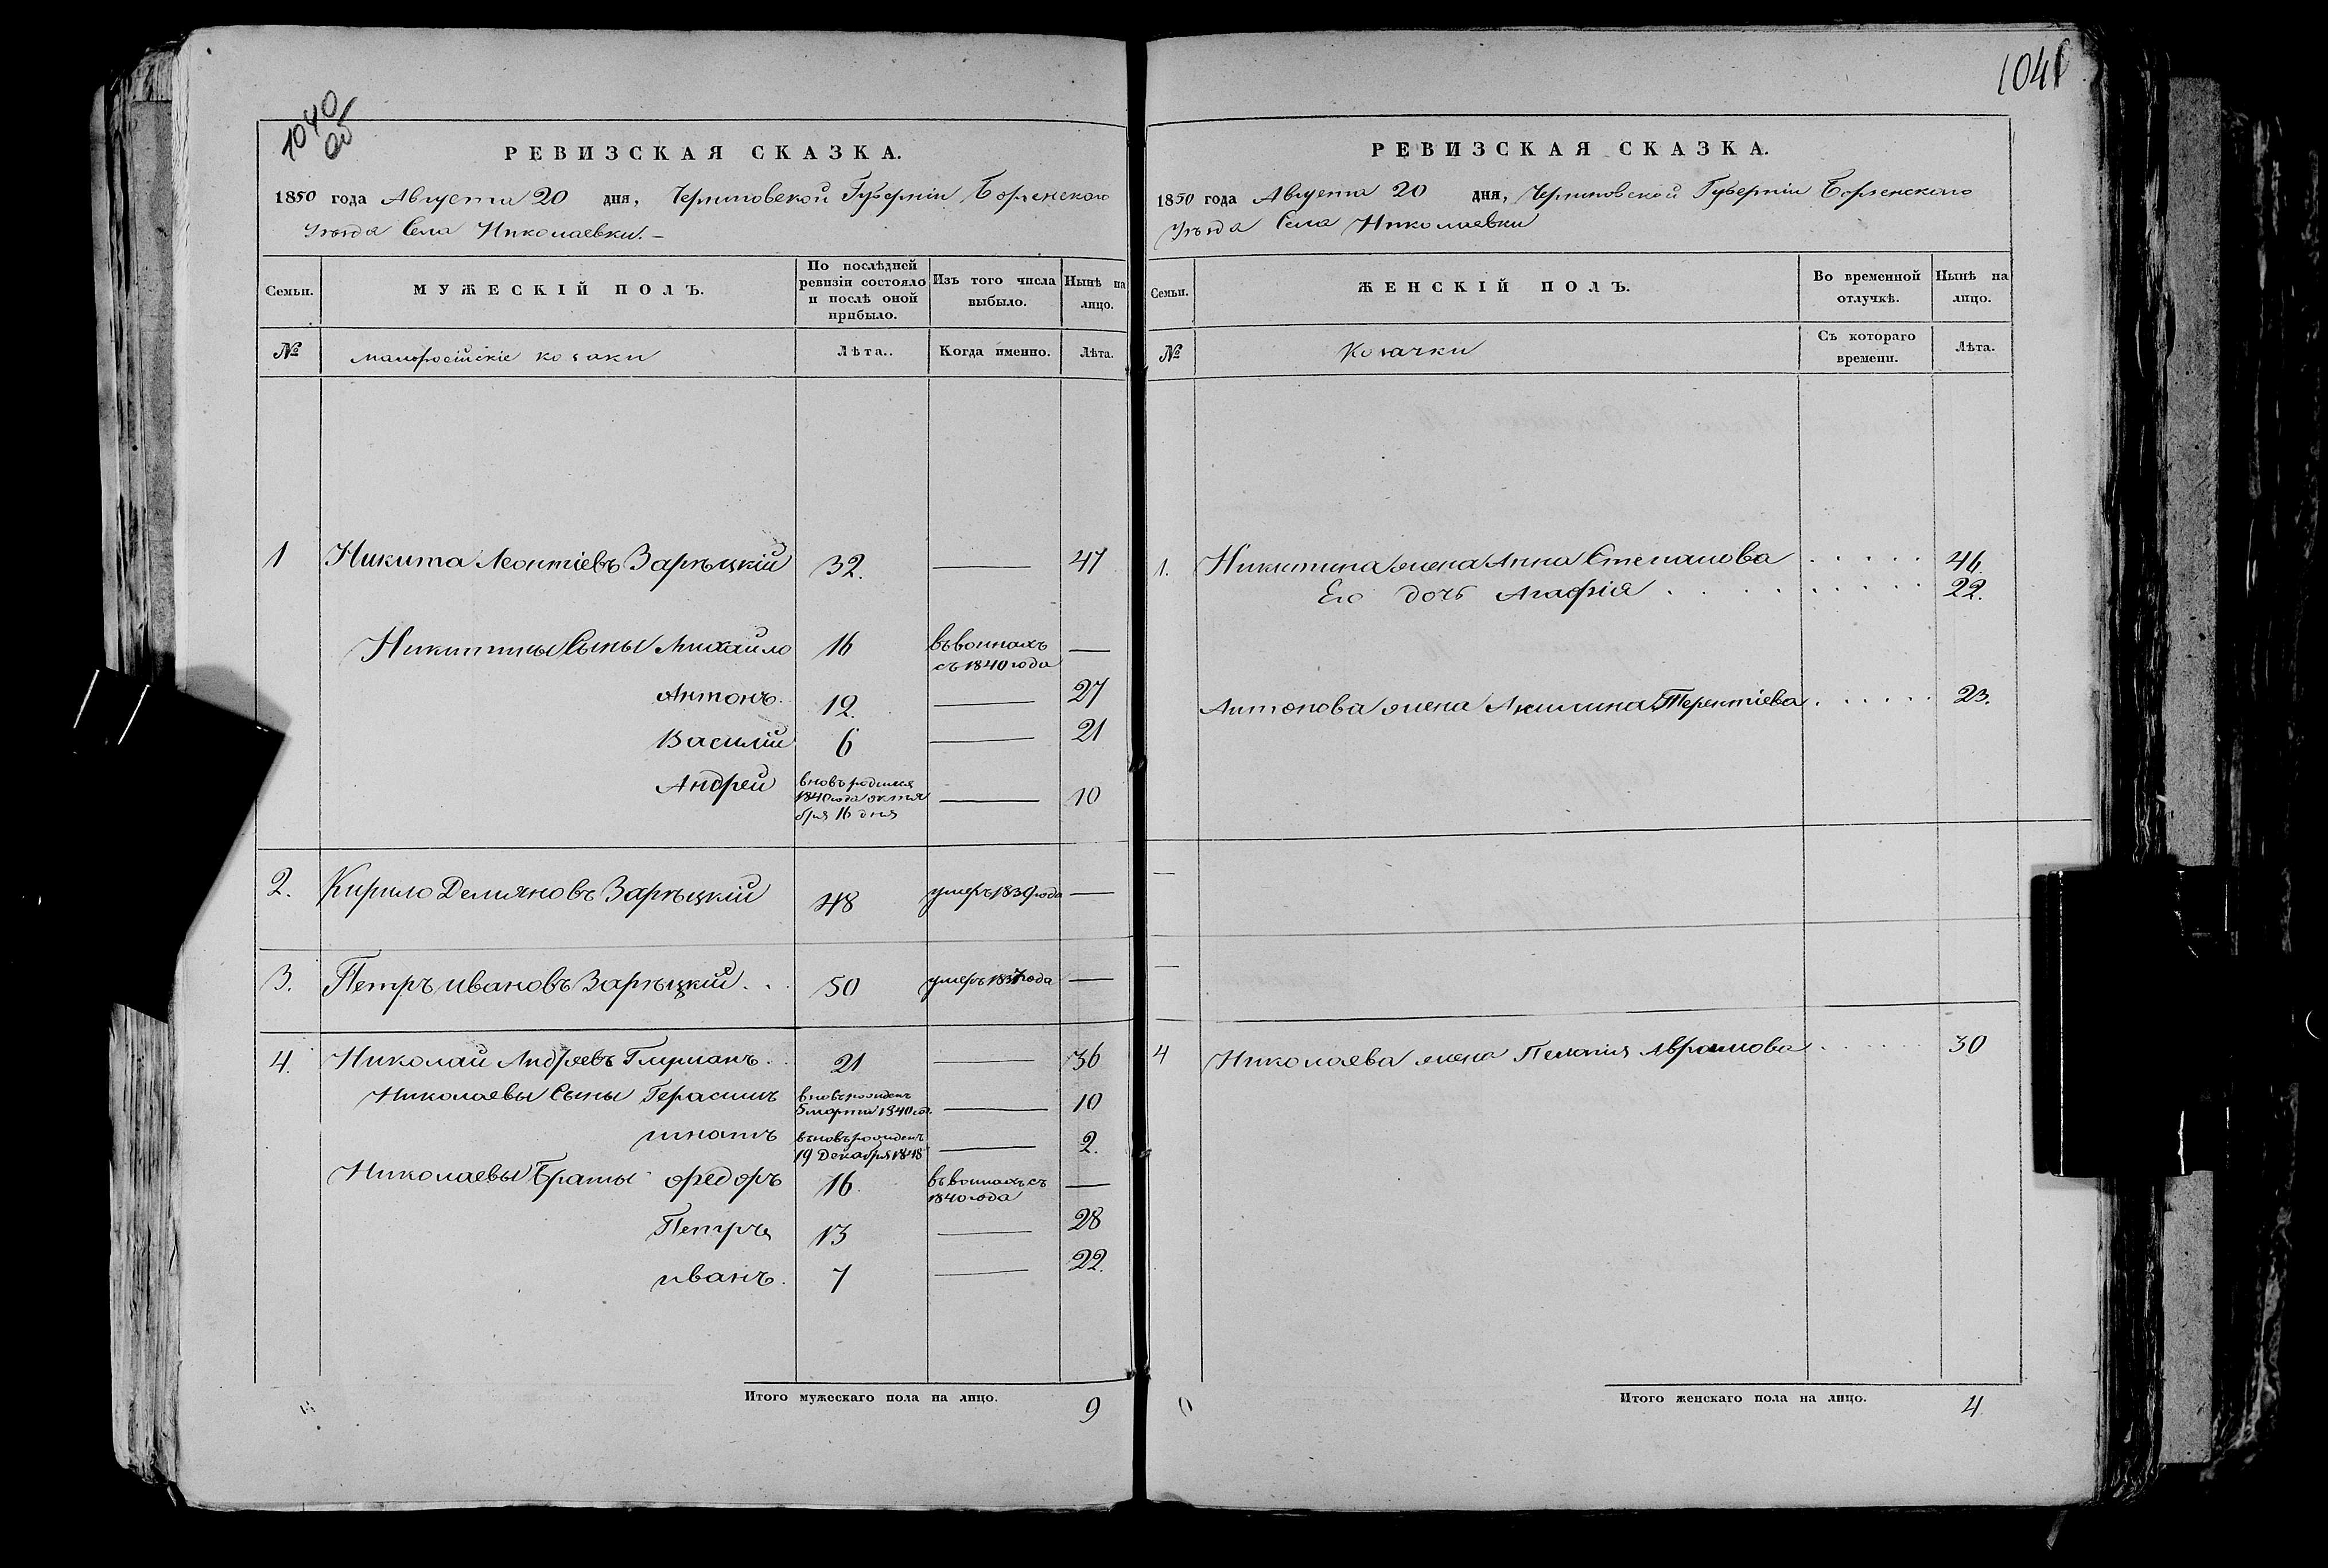 1040
об
РЕВИЗСКАЯ СКАЗКА.
1850 года Августа 20 дня, Черниговской Губерніи Борзенского
Уѣзда Села Николаевки.
Семьи. МУЖЕСКІЙ ПОЛЪ. По послѣдней ревизіи состояло и послѣ оной прибыло. Изъ того числа выбыло. Нынѣ на лицо.
№ малоросійскіе козаки Лѣта. Когда именно. Лѣта.
1 Никита Леонтіевъ Зарѣцкій 32. 47
Никитины Сыны Михайло 16 въ воинахъ
съ 1840 года
Антонъ. 12. 27
Василій 6 21
Андрей вновь родился
1840 года октя
бря 16 дня 10
2. Кирило Демяновъ Зарѣцкій 48 умеръ 1839 года
3. Петръ ивановъ Зарѣцкій 50 умеръ 1837 года
4. Николай Андреевъ Глушанъ 21 36
Николаевы Сыны Герасимъ вновь рожденъ
5 марта 1840 го. 10
игнатъ вновь рожденъ
19 Декабря 1848 2.
Николаевы Браты федоръ 16. въ воинахъ съ
1840 года
Петръ 13 28
иванъ. 7 22.
Итого мужескаго пола на лицо. 9
1041
РЕВИЗСКАЯ СКАЗКА.
1850 года Августа 20 дня, Черниговской Губерніи Борзенского
Уѣзда Села Николаевки
Семьи. ЖЕНСКІЙ ПОЛЪ. Во временной отлучкѣ. Нынѣ на лицо.
№ Козачки Съ котораго времени. Лѣта.
1. Никитина жена Анна Степанова 46.
Его дочь Агафія 22.
Антонова жена Акилина Терентіева 23.
4 Николаева жена Пелагія Аврамова 30
Итого женскаго пола на лицо. 4